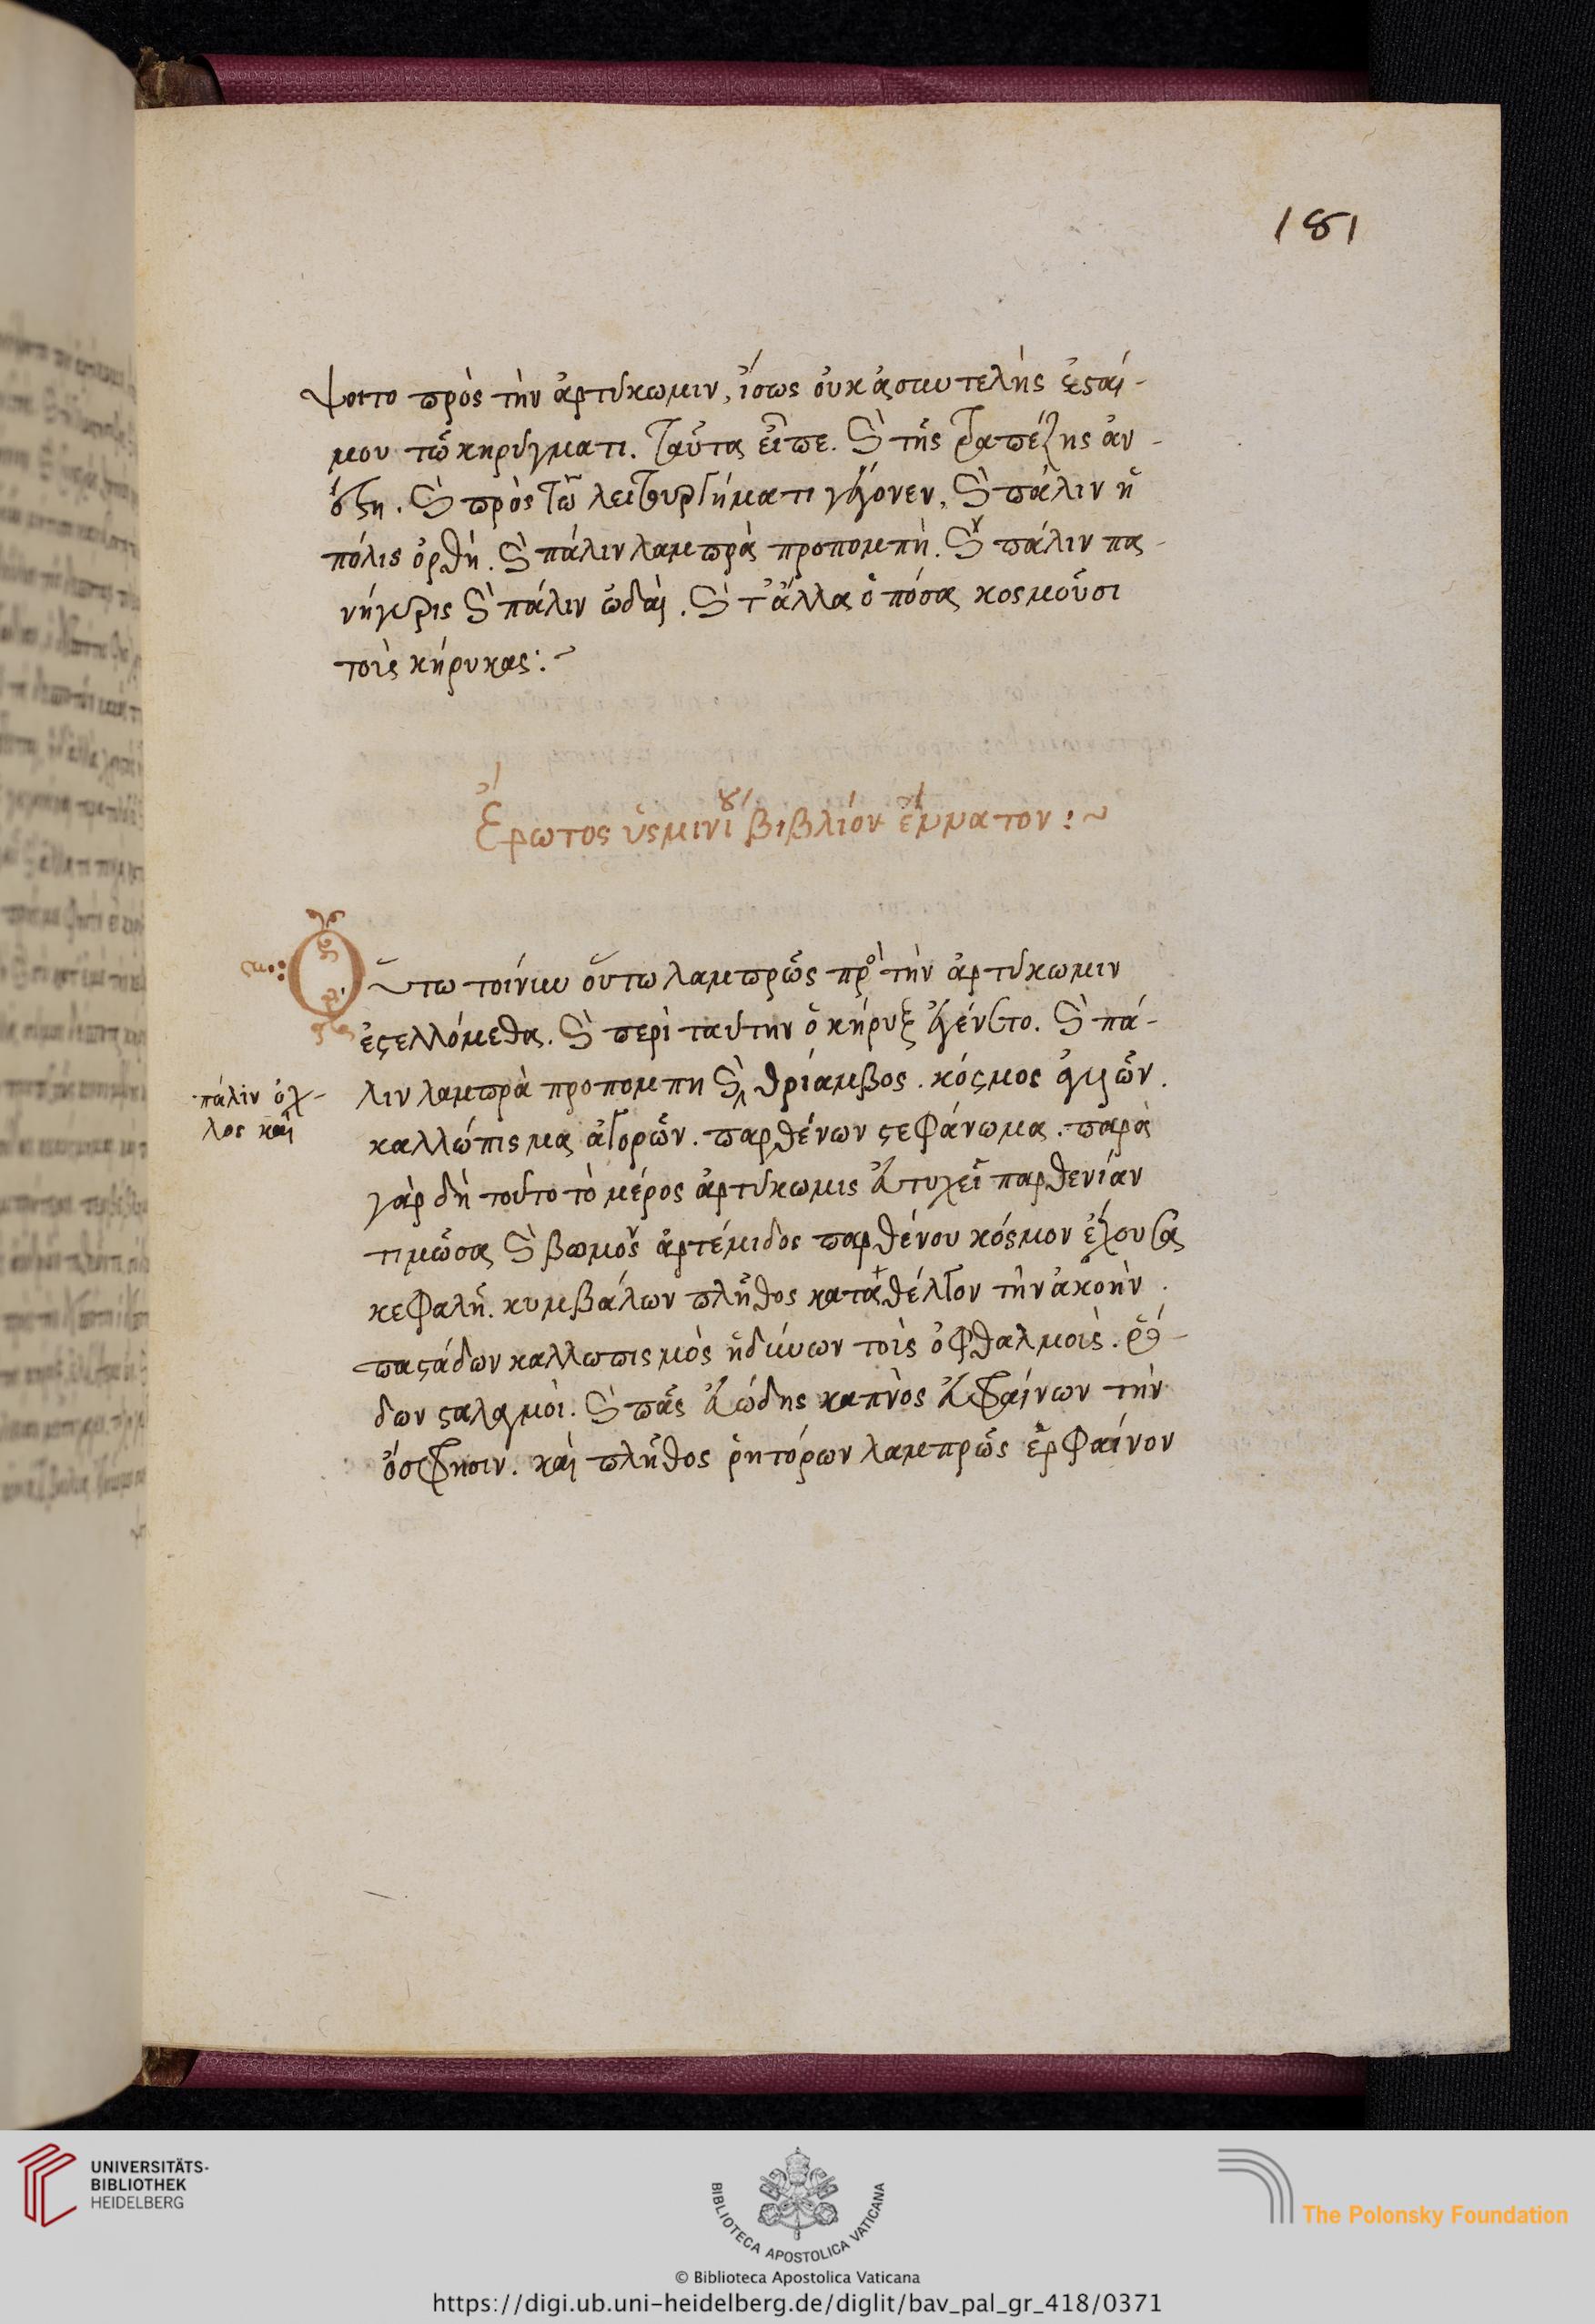 181
ψοιτο πρὸς τὴν ἀρτύκωμιν, ἴσως οὐκ ἀσυντελὴς ἔσται
μου τῶ κηρύγματι. ταῦτα εἶπε. καὶ τῆς τραπέζης ἀν-
έστη. καὶ πρὸς τῶ λειτουργήματι γέγονεν, καὶ πάλιν ἡ
πόλις ὀρθὴ. καὶ πάλιν λαμπρὰ προπομπὴ. καὶ πάλιν πα-
νήγυρις καὶ πάλιν ὠδαὶ. καὶ τἄλλα ὁπόσα κοσμοῦσι
τοὺς κήρυκας:~
Ἔρωτος ὑσμίνου βιβλίον ἕνατον:~
Οὕτω τοίνυν οὕτω λαμπρῶς πρὸς τὴν ἀρτύκωμιν
ἐστελλόμεθα. καὶ περὶ ταύτην ὁ κήρυξ ἐγένετο. καὶ πά-
λιν λαμπρὰ προπομπη καὶ θρίαμβος. κόσμος ἀγυιῶν.
πάλιν ὄχ-
λος καὶ
καλλώπισμα ἀγορῶν. παρθένων στεφάνωμα. παρὰ
γὰρ δὴ τοῦτο τὸ μέρος ἀρτύκωμις εὐτυχεῖ παρθενίαν
τιμῶσα καὶ βωμοὺς ἀρτέμιδος παρθένου κόσμον ἔχουσα
κεφαλῆ. κυμβάλων πλῆθος καταθέλγον τὴν ἀκοὴν.
παστάδων καλλωπισμὸς ἡδύνων τοὺς ὀφθαλμοὺς. ῥό-
δων σταλαγμοὶ. καὶ πᾶς εὐώδης καπνὸς εὐφραίνων τὴν
ὄσφρησιν. καὶ πλῆθος ῥητόρων λαμπρῶς
UNIVERSITÄTS-
BIBLIOTHEK
HEIDELBERG
BIBLIOTECA APOSTOLICA VATICANA
The Polonsky Foundation
© Biblioteca Apostolica Vaticana
https://digi.ub.uni-heidelberg.de/diglit/bav_pal_gr_418/0371